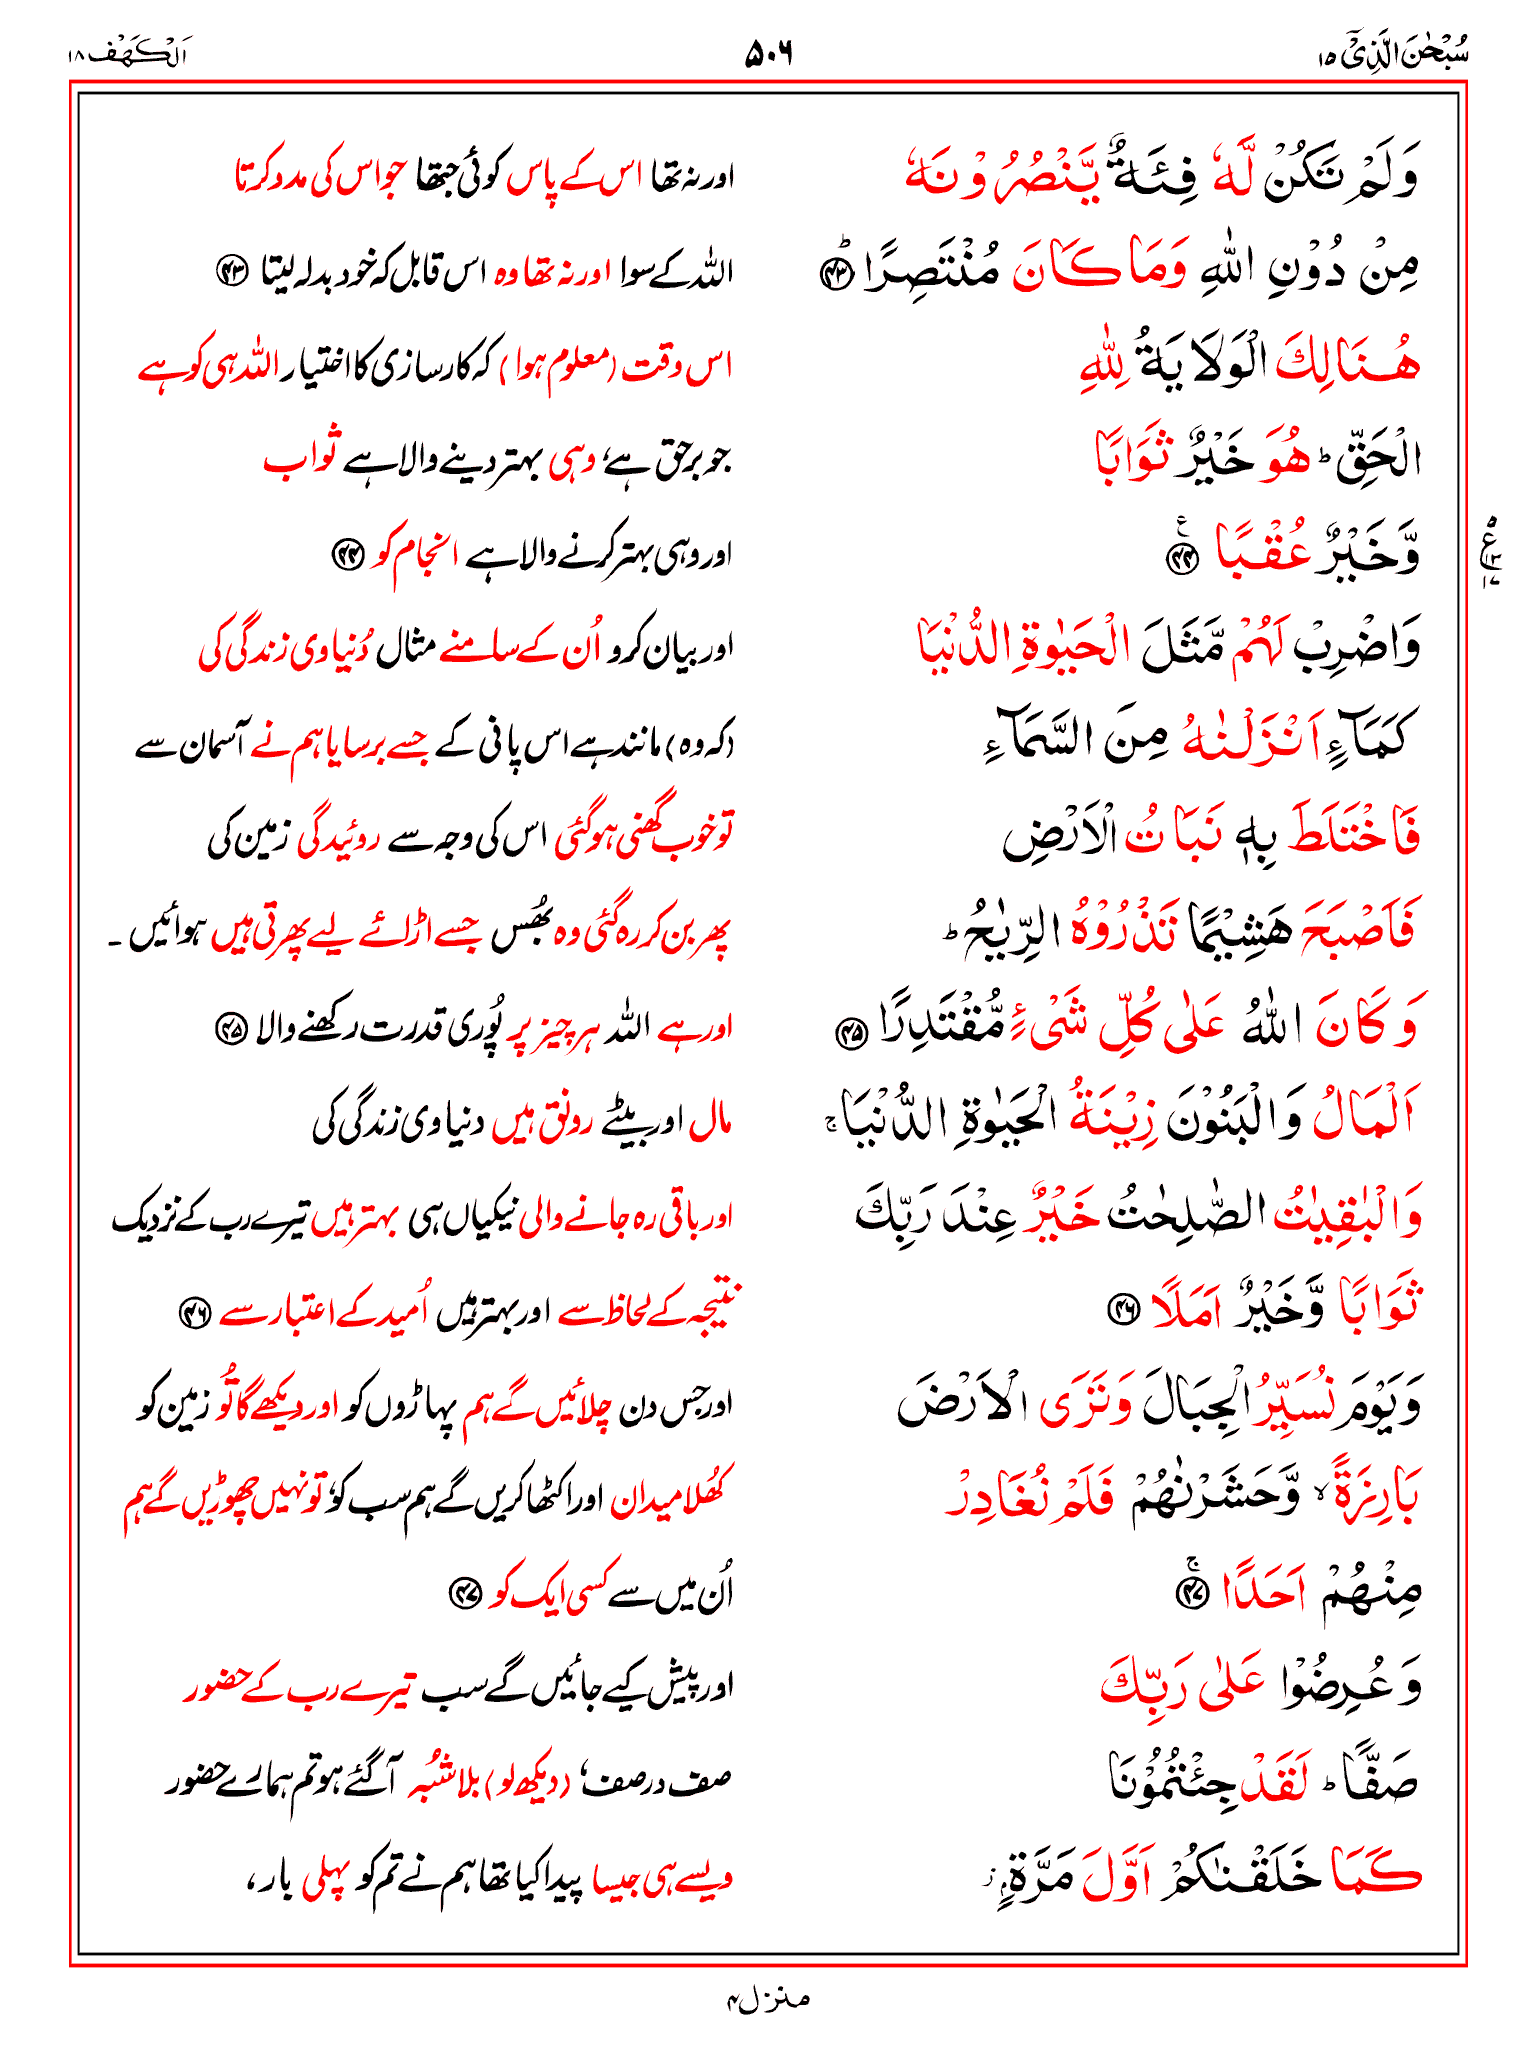 سُبْحٰنَ الَّذِیْۤ ۱۵
۵۰۶
اَلْکَهْف ۱۸
وَلَمْ تَكُنْ لَّهٗ فِئَةٌ یَّنْصُرُوْنَهٗ اور نہ تھا اس کے پاس کوئی جتھا جو اس کی مدد کرتا
مِنْ دُوْنِ اللّٰهِ وَمَا كَانَ مُنْتَصِرًا ؕ ۴۳ اللہ کے سوا اور نہ تھا وہ اس قابل کہ خود بدلہ لیتا ۴۳
هُنَالِكَ الْوَلَایَةُ لِلّٰهِ اس وقت (معلوم ہوا) کہ کارسازی کا اختیار اللہ ہی کو ہے
الْحَقِّ ؕ هُوَ خَیْرٌ ثَوَابًا جو برحق ہے، وہی بہتر دینے والا ہے ثواب
وَّخَیْرٌ عُقْبًا ۴۴ اور وہی بہتر کرنے والا ہے انجام کو ۴۴
وَاضْرِبْ لَهُمْ مَّثَلَ الْحَیٰوةِ الدُّنْیَا اور بیان کرو اُن کے سامنے مثال دُنیاوی زندگی کی
كَمَآءٍ اَنْزَلْنٰهُ مِنَ السَّمَآءِ (کہ وہ) مانند ہے اس پانی کے جسے برسایا ہم نے آسمان سے
فَاخْتَلَطَ بِهٖ نَبَاتُ الْاَرْضِ تو خوب گھنی ہوگئی اس کی وجہ سے روئیدگی زمین کی
فَاَصْبَحَ هَشِیْمًا تَذْرُوْهُ الرِّیٰحُ ؕ پھر بن کر رہ گئی وہ بھُس جسے اڑائے لیے پھرتی ہیں ہوائیں ۔
وَكَانَ اللّٰهُ عَلٰی كُلِّ شَیْءٍ مُّقْتَدِرًا ۴۵ اور ہے اللہ ہر چیز پر پُوری قدرت رکھنے والا ۴۵
اَلْمَالُ وَالْبَنُوْنَ زِیْنَةُ الْحَیٰوةِ الدُّنْیَا ۚ مال اور بیٹے رونق ہیں دنیاوی زندگی کی
وَالْبٰقِیٰتُ الصّٰلِحٰتُ خَیْرٌ عِنْدَ رَبِّكَ اور باقی رہ جانے والی نیکیاں ہی بہتر ہیں تیرے رب کے نزدیک
ثَوَابًا وَّخَیْرٌ اَمَلًا ۴۶ نتیجہ کے لحاظ سے اور بہتر ہیں اُمید کے اعتبار سے ۴۶
وَیَوْمَ نُسَیِّرُ الْجِبَالَ وَتَرَی الْاَرْضَ اور جس دن چلائیں گے ہم پہاڑوں کو اور دیکھے گا تُو زمین کو
بَارِزَةً ۙ وَّحَشَرْنٰهُمْ فَلَمْ نُغَادِرْ کھُلا میدان اور اکٹھا کریں گے ہم سب کو، تو نہیں چھوڑیں گے ہم
مِنْهُمْ اَحَدًا ۚ ۴۷ اُن میں سے کسی ایک کو ۴۷
وَعُرِضُوْا عَلٰی رَبِّكَ اور پیش کیے جائیں گے سب تیرے رب کے حضور
صَفًّا ؕ لَقَدْ جِئْتُمُوْنَا صف در صف، (دیکھ لو) بلا شُبہ آ گئے ہو تم ہمارے حضور
كَمَا خَلَقْنٰكُمْ اَوَّلَ مَرَّةٍ ؗ ویسے ہی جیسا پیدا کیا تھا ہم نے تم کو پہلی بار،
منزل ۴